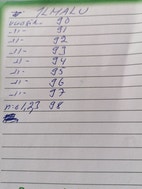 ILMALU
90
-11- 91
-11- 92
-11- 93
-11- 94
-11- 95
-11- 96
-11- 97
n:o 1,2,3 98